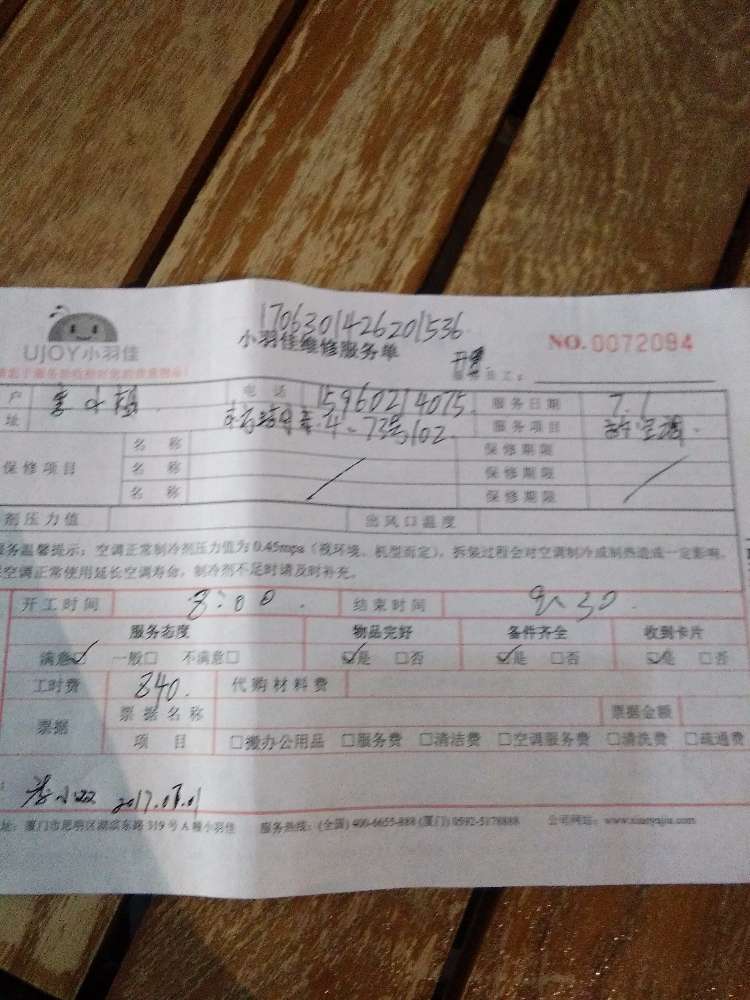 1706301426201536
UJOY小羽佳
小羽佳维修服务单
NO.0072094
户 电话 15960214075 服务日期 7.1
址 73号102 服务项目 空调
保修项目 名称 保修期限
名称 保修期限
名称 保修期限
剂压力值 出风口温度
服务温馨提示：空调正常制冷剂压力值为0.45mpa（视环境、机型而定），拆装过程会对空调制冷或制热造成一定影响。
空调正常使用延长空调寿命，制冷剂不足时请及时补充。
开工时间 8:00 结束时间 9:30
服务态度 物品完好 备件齐全 收到卡片
满意☑ 一般□ 不满意□ ☑是 □否 ☑是 □否 ☑是 □否
工时费 840. 代购材料费
票据 票据名称 票据金额
项目 □搬办公用品 □服务费 □清洁费 □空调服务费 □清洗费 □疏通费
2017.07.01
址：厦门市思明区湖滨东路319号A幢小羽佳 服务热线：(全国) 400-6655-888 (厦门) 0592-5178888 公司网站：www.xiaoyujia.com